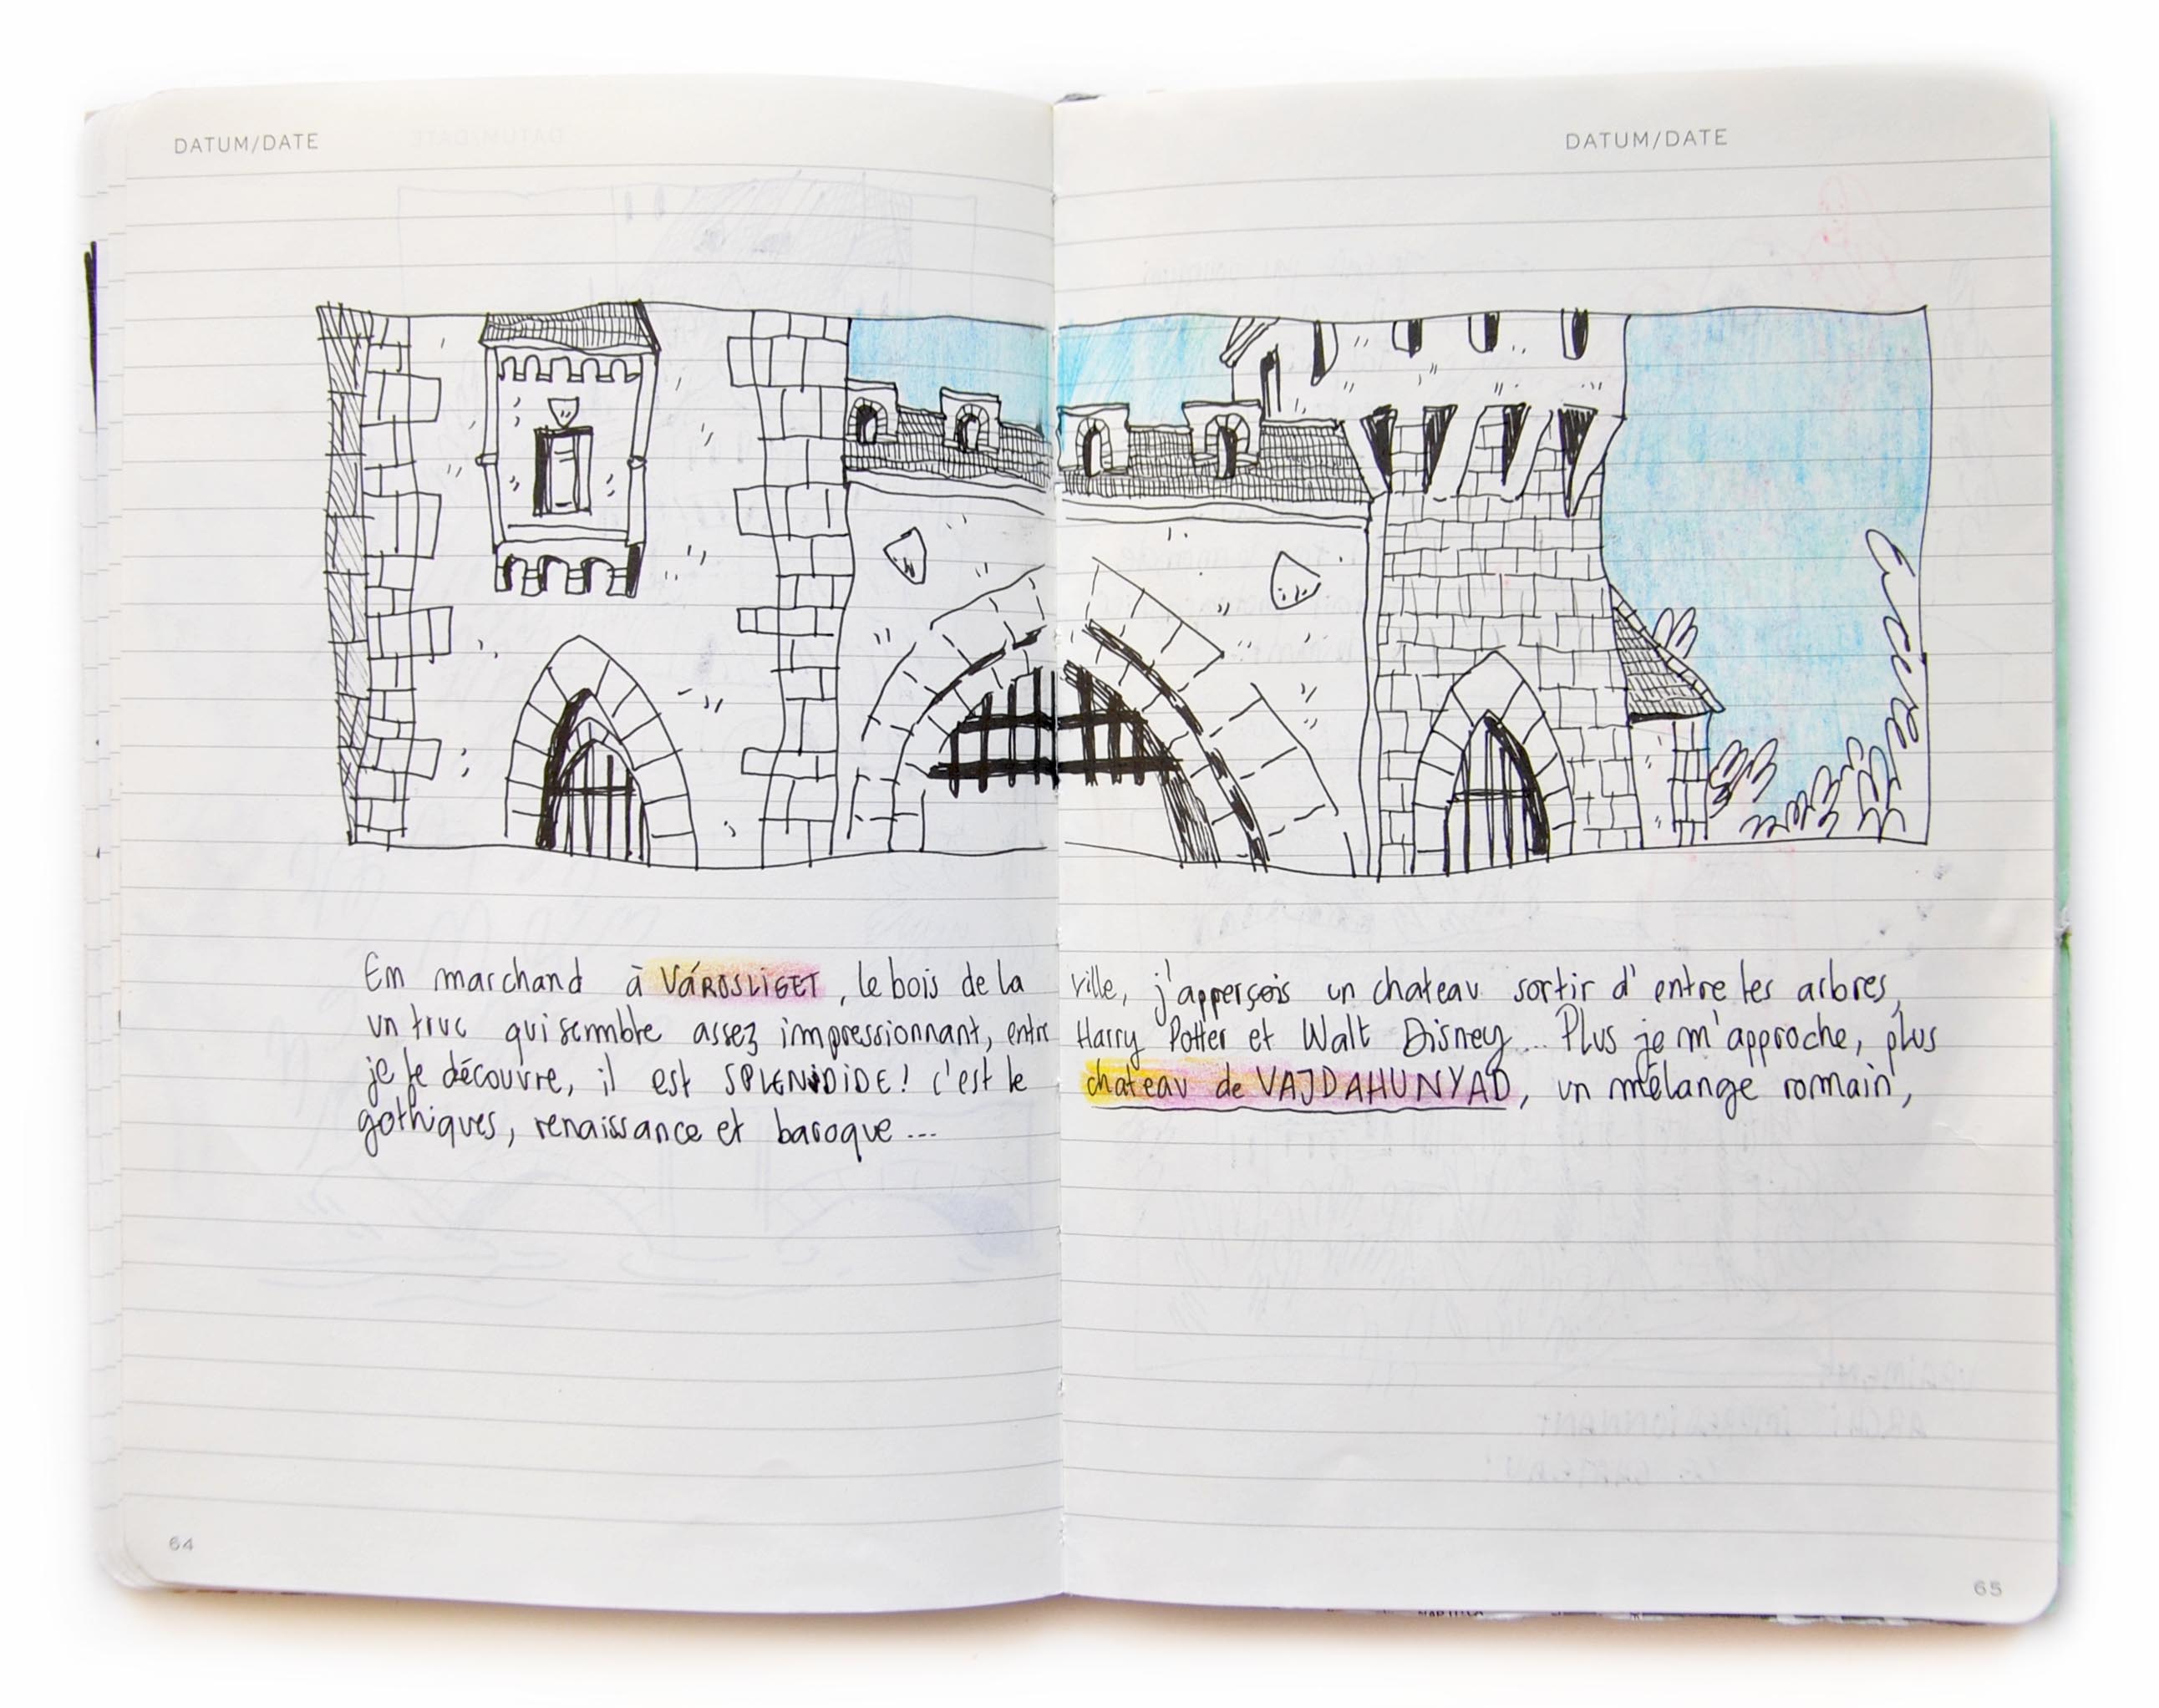 DATUM/DATE
DATUM/DATE
Em marchand à VÁROSLIGET, le bois de la ville, j'apperçois un chateau sortir d'entre les arbres,
un truc qui semble assez impressionnant, entre Harry Potter et Walt Disney... Plus je m'approche, plus
je le découvre, il est SPLENDIDE! c'est le chateau de VAJDAHUNYAD, un mélange romain,
gothiques, renaissance et baroque...
64
65